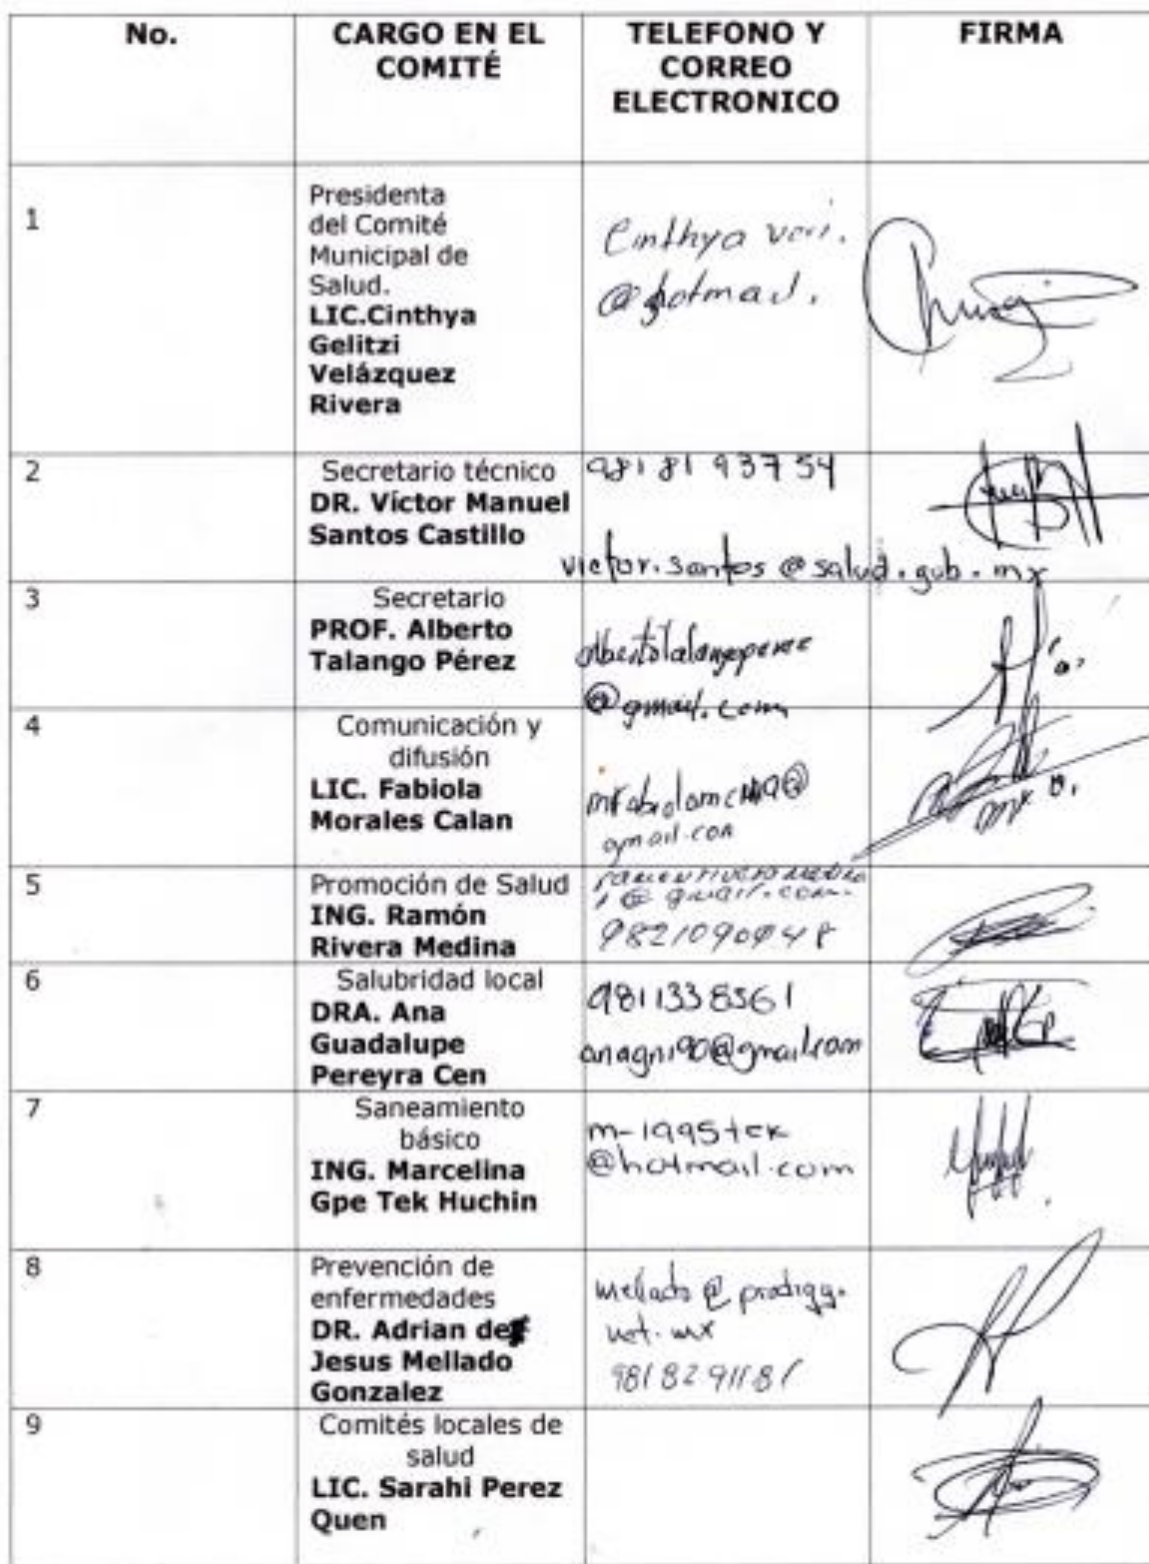 No.
CARGO EN EL
COMITÉ
TELEFONO Y
CORREO
ELECTRONICO
FIRMA
1
Presidenta
del Comité
Municipal de
Salud.
LIC.Cinthya
Gelitzi
Velázquez
Rivera
Cinthya
@hotmail.
2
Secretario técnico
DR. Víctor Manuel
Santos Castillo
981 81 93754
victor.santos@salud.gob.mx
3
Secretario
PROF. Alberto
Talango Pérez
albertotalangoperez
@gmail.com
4
Comunicación y
difusión
LIC. Fabiola
Morales Calan
gmail.com
5
Promoción de Salud
ING. Ramón
Rivera Medina
ramonriveramedina
1@gmail.com.
6
Salubridad local
DRA. Ana
Guadalupe
Pereyra Cen
9811338561
anagni90@gmail.com
7
Saneamiento
básico
ING. Marcelina
Gpe Tek Huchin
m-1995tek
@hotmail.com
8
Prevención de
enfermedades
DR. Adrian de
Jesus Mellado
Gonzalez
mellado@prodigy.
net.mx
9818291181
9
Comités locales de
salud
LIC. Sarahi Perez
Quen